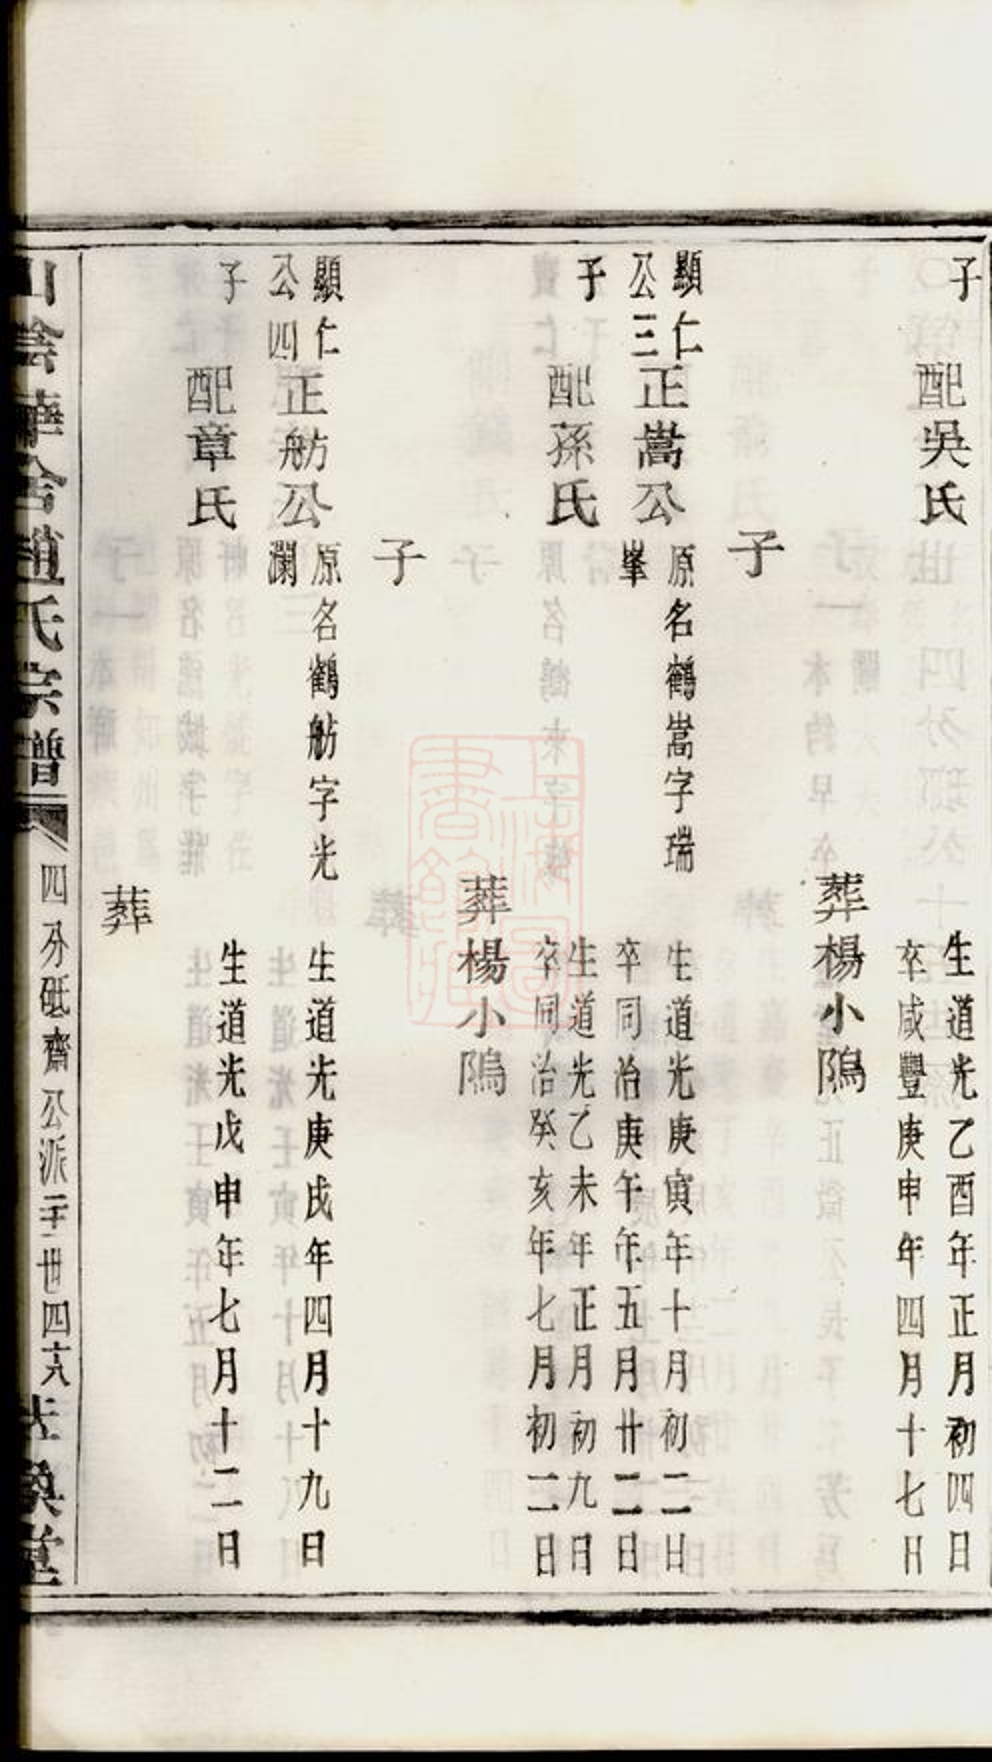 子
配吳氏
生道光乙酉年正月初四日
卒咸豐庚申年四月十七日
葬楊小隖
子
顯仁
公三
子
正嵩公
原名鶴嵩字瑞
峯
生道光庚寅年十月初二日
卒同治庚午年五月廿二日
配孫氏
生道光乙未年正月初九日
卒同治癸亥年七月初二日
葬楊小隖
子
顯仁
公四
子
正舫公
原名鶴舫字光
瀾
生道光庚戌年四月十九日
配章氏
生道光戊申年七月十二日
葬
山陰華舍趙氏宗譜
四分砥齋公派二十一世